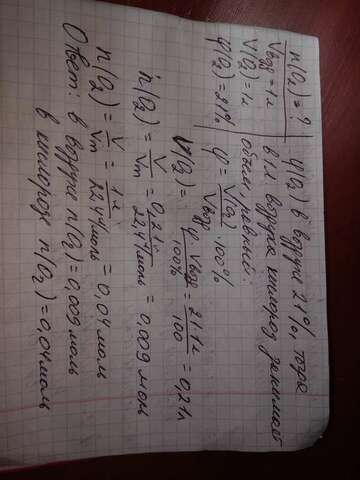 n(O₂) = ? | φ(O₂) в воздухе 21%, тогда
Vвозд = 1л | в 1л воздуха кислород занимает
V(O₂) = 1л | объем равный:
φ(O₂) = 21% | φ = V(O₂)/Vвозд · 100%
V(O₂) = φ · Vвозд/100% = 21·1л/100 = 0,21л
n(O₂) = V/Vm = 0,21л/22,4л/моль = 0,009 моль
n(O₂) = V/Vm = 1л/22,4л/моль = 0,04 моль
Ответ: в воздухе n(O₂) = 0,009 моль
в кислороде n(O₂) = 0,04 моль